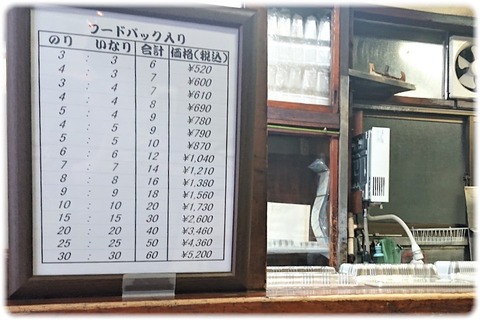 フードパック入り
のり いなり 合計 価格(税込)
3 : 3 6 ¥520
4 : 3 7 ¥600
3 : 4 7 ¥610
4 : 4 8 ¥690
5 : 4 9 ¥780
4 : 5 9 ¥790
5 : 5 10 ¥870
6 : 6 12 ¥1,040
7 : 7 14 ¥1,210
8 : 8 16 ¥1,380
9 : 9 18 ¥1,560
10 : 10 20 ¥1,730
15 : 15 30 ¥2,600
20 : 20 40 ¥3,460
25 : 25 50 ¥4,360
30 : 30 60 ¥5,200